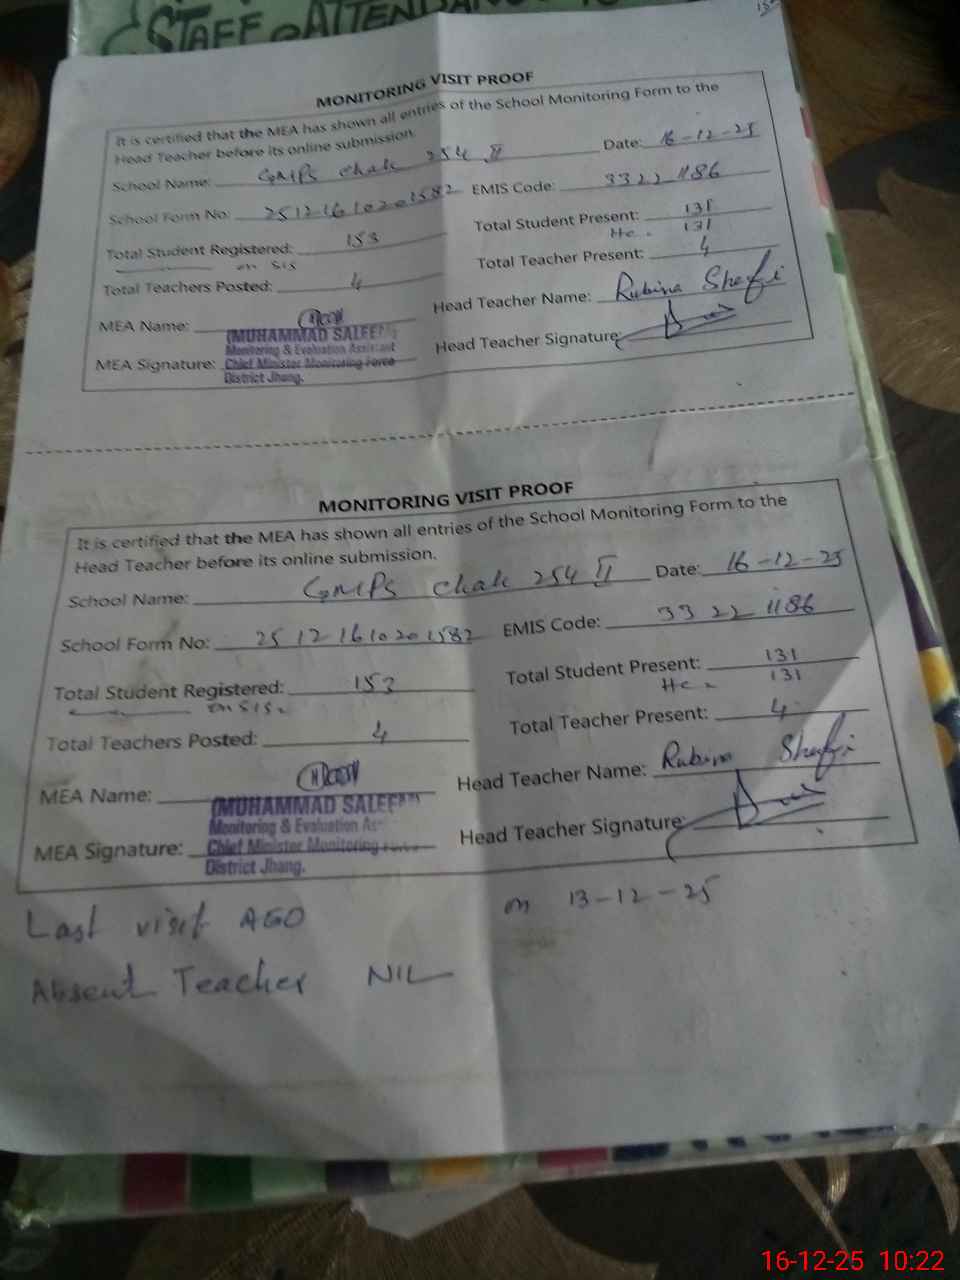 STAFF ATTENDANCE
MONITORING VISIT PROOF
It is certified that the MEA has shown all entries of the School Monitoring Form to the
Head Teacher before its online submission.
School Name: GMPS Chak 254 II Date: 16-12-25
School Form No: 25121610201582 EMIS Code: 33221186
Total Student Registered: 153 Total Student Present: 131
on SIS Hc. 131
Total Teachers Posted: 4 Total Teacher Present: 4
MEA Name: Head Teacher Name: Rubina Shafi
(MUHAMMAD SALEEM)
Monitoring & Evaluation Assistant
MEA Signature: Chief Minister Monitoring Force Head Teacher Signature:
District Jhang.
MONITORING VISIT PROOF
It is certified that the MEA has shown all entries of the School Monitoring Form to the
Head Teacher before its online submission.
School Name: GMPS Chak 254 II Date: 16-12-25
School Form No: 25121610201582 EMIS Code: 33221186
Total Student Registered: 153 Total Student Present: 131
on SIS. Hc. 131
Total Teachers Posted: 4 Total Teacher Present: 4
MEA Name: Head Teacher Name: Rubina Shafi
(MUHAMMAD SALEEM)
Monitoring & Evaluation As
MEA Signature: Chief Minister Monitoring Force Head Teacher Signature:
District Jhang.
Last visit AEO on 13-12-25
Absent Teacher NIL
16-12-25 10:22